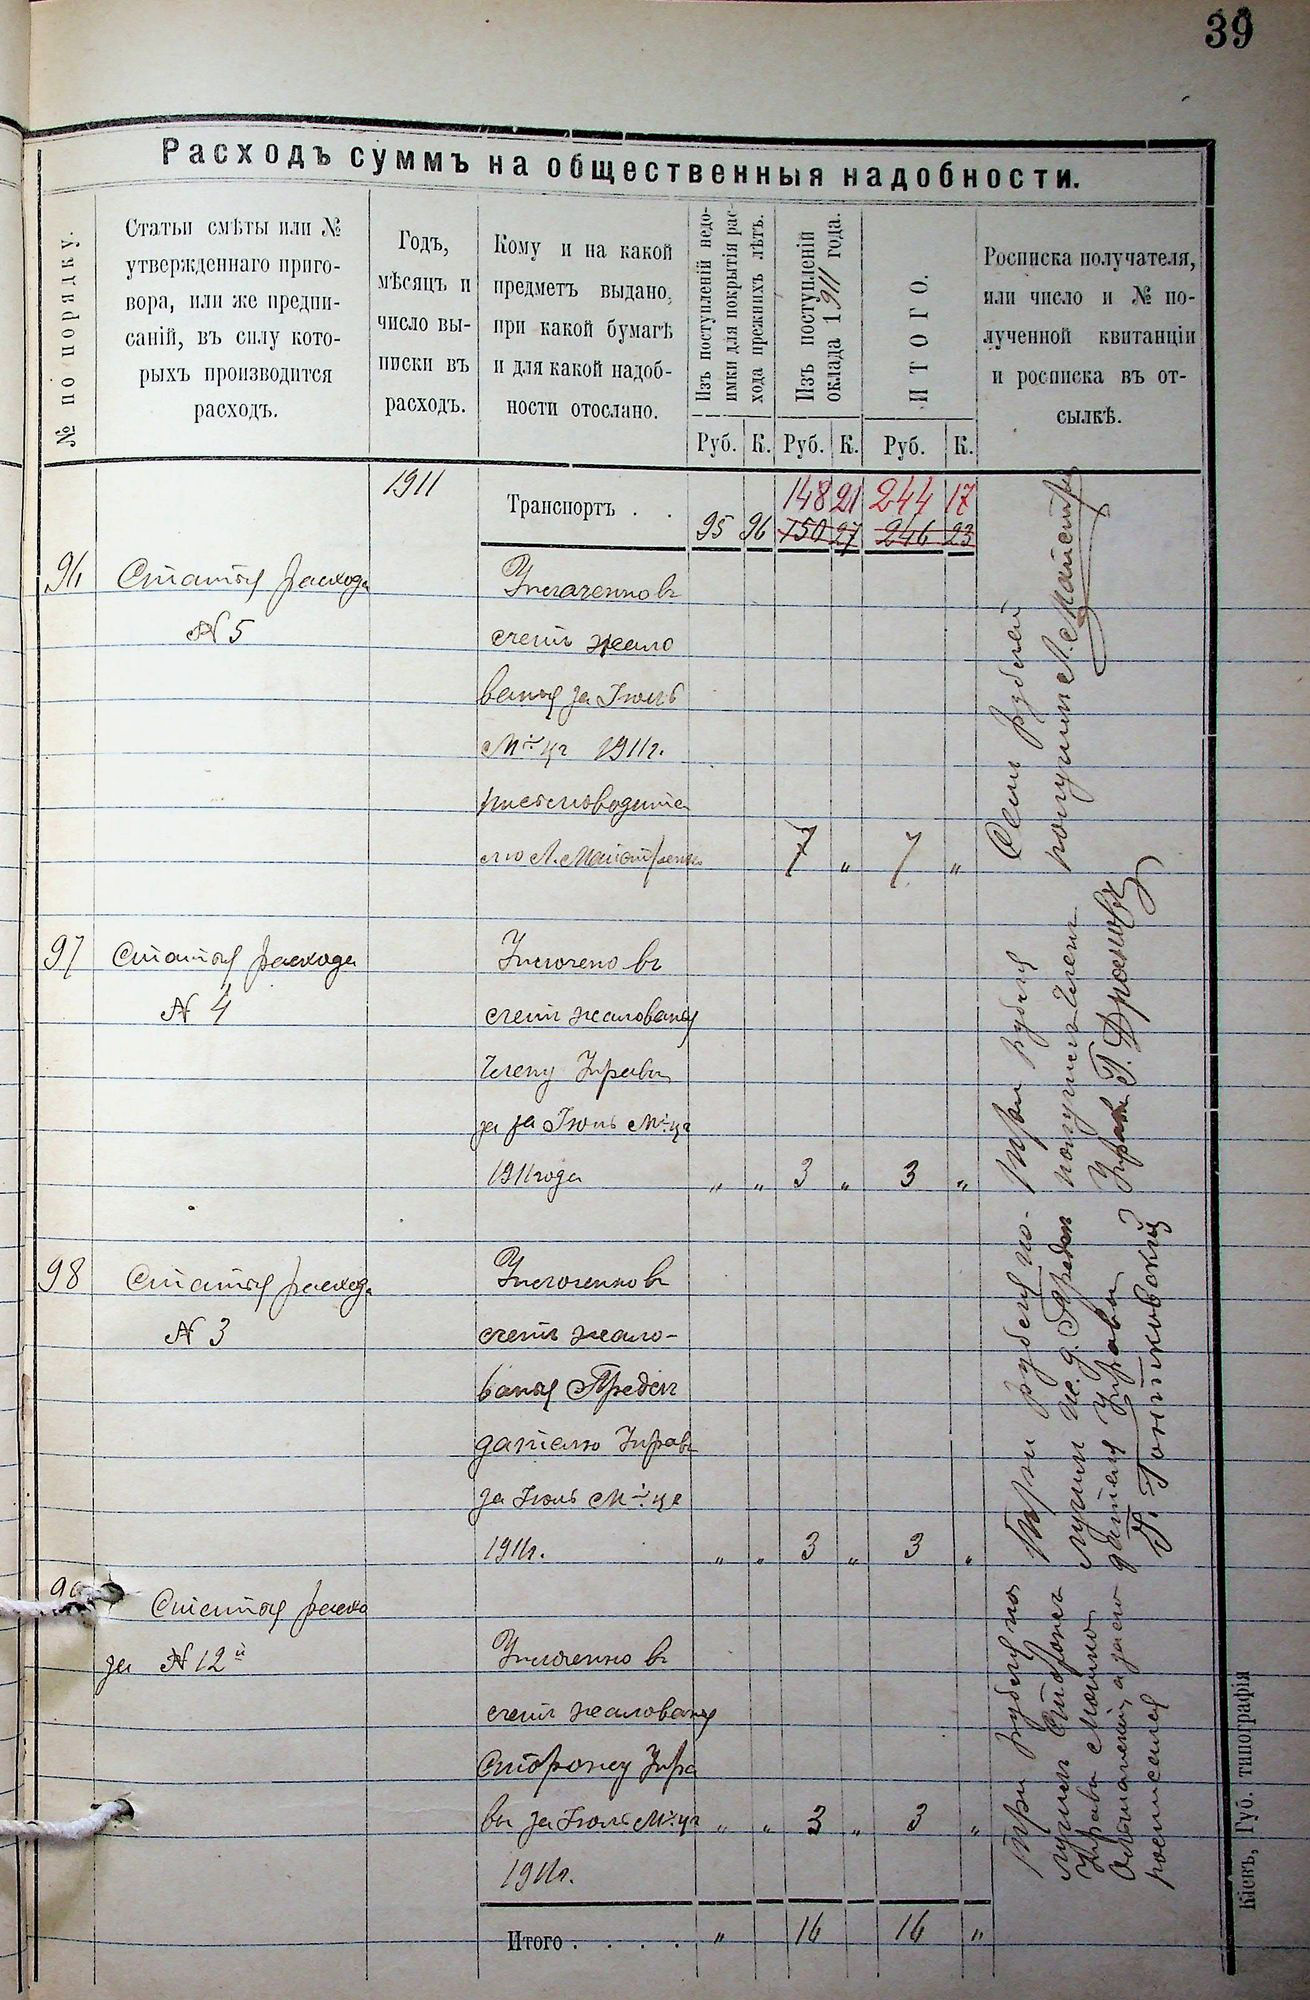 39
Расходъ суммъ на общественныя надобности.
№ по порядку.
Статьи смѣты или №
утвержденнаго приго-
вора, или же предпи-
саній, въ силу кото-
рыхъ производится
расходъ.
Годъ,
мѣсяцъ и
число вы-
писки въ
расходъ.
Кому и на какой
предметъ выдано,
при какой бумагѣ
и для какой надоб-
ности отослано.
Изъ поступленій недо-
имки для покрытія рас-
хода прежнихъ лѣтъ.
Изъ поступленій
оклада 1911 года.
ИТОГО.
Росписка получателя,
или число и № по-
лученной квитанціи
и росписка въ от-
сылкѣ.
Руб. К. Руб. К. Руб. К.
1911
Транспортъ . .
148 21 244 17
95 96 150 27 246 23
96 Статья расхода
№ 5
Уплаченно въ
счетъ жало
ванья за Іюль
М-цъ 1911г.
письмоводите
лю А.
7 „ 7 „
Семь рублей
получилъ А.
97 Статья расхода
№ 4
Уплочено въ
счетъ жалованья
Члену Управы
за за Іюль М-цъ
1911 года
„ „ 3 „ 3 „
Три рубля
получилъ Членъ
Управы Г.
98 Статья расхода
№ 3
Уплоченно въ
счетъ жало-
ванья Предсѣ
дателю Управы
за Іюль М-ца
1911г.
„ „ 3 „ 3 „
Три рубля по-
лучилъ и. д. Предсѣ
дателя Управы
Статья расхо
да № 12й
Уплоченно въ
счетъ жалованья
Сторожу Упра
вы за Іюль М-цъ
1911г.
„ „ 3 „ 3 „
Три рубля по
лучилъ Сторожъ
Управы
а за его
росписался
Итого . . . .
„ 16 16 „
Кіевъ, Губ. типографія